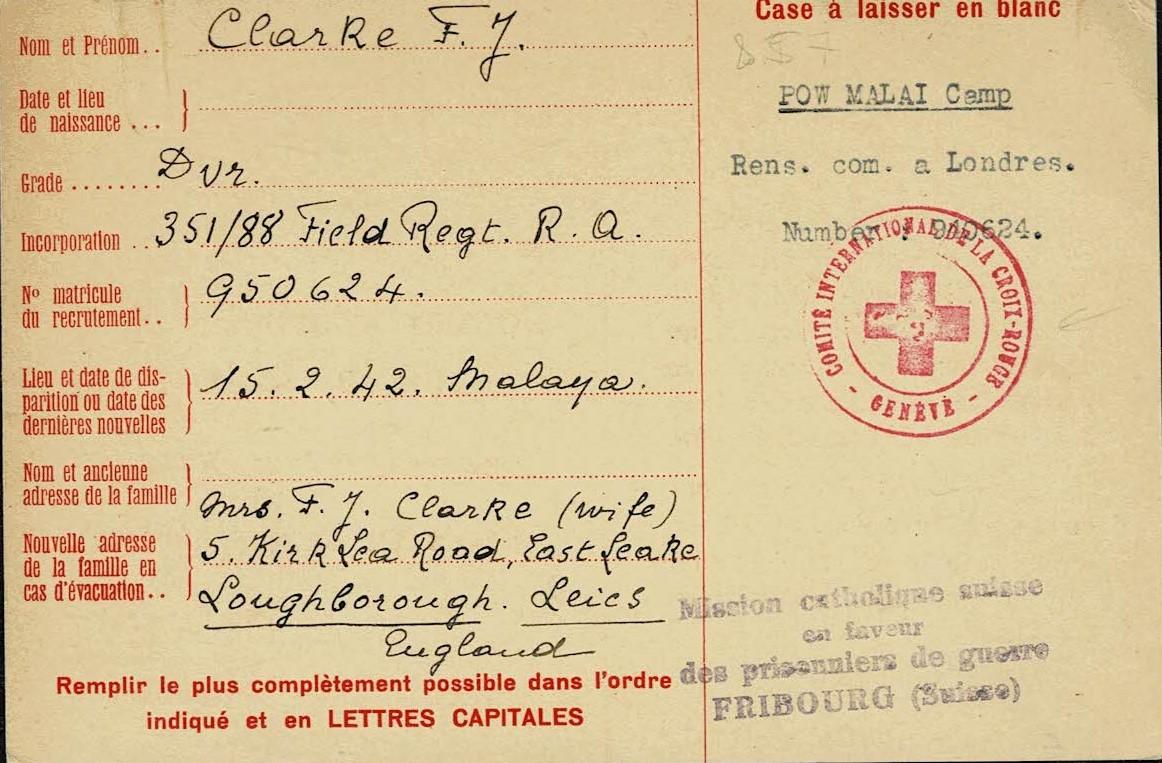 Nom et Prénom.. Clarke F. J.
Date et lieu
de naissance ...
Grade ........ Dvr.
Incorporation .. 351/88 Field Regt. R. A.
Nº matricule
du recrutement.. 950624.
Lieu et date de dis-
parition ou date des
dernières nouvelles
15. 2. 42. Malaya.
Nom et ancienne
adresse de la famille
Mrs. F. J. Clarke (wife)
Nouvelle adresse
de la famille en
cas d'évacuation..
5. Kirk Lea Road, East Leake
Loughborough. Leics
England
Remplir le plus complètement possible dans l'ordre
indiqué et en LETTRES CAPITALES
Case à laisser en blanc
857
POW MALAI Camp
Rens. com. a Londres.
Number : 940624.
COMITÉ INTERNATIONAL DE LA CROIX-ROUGE
- GENÈVE -
Mission catholique suisse
en faveur
des prisonniers de guerre
FRIBOURG (Suisse)